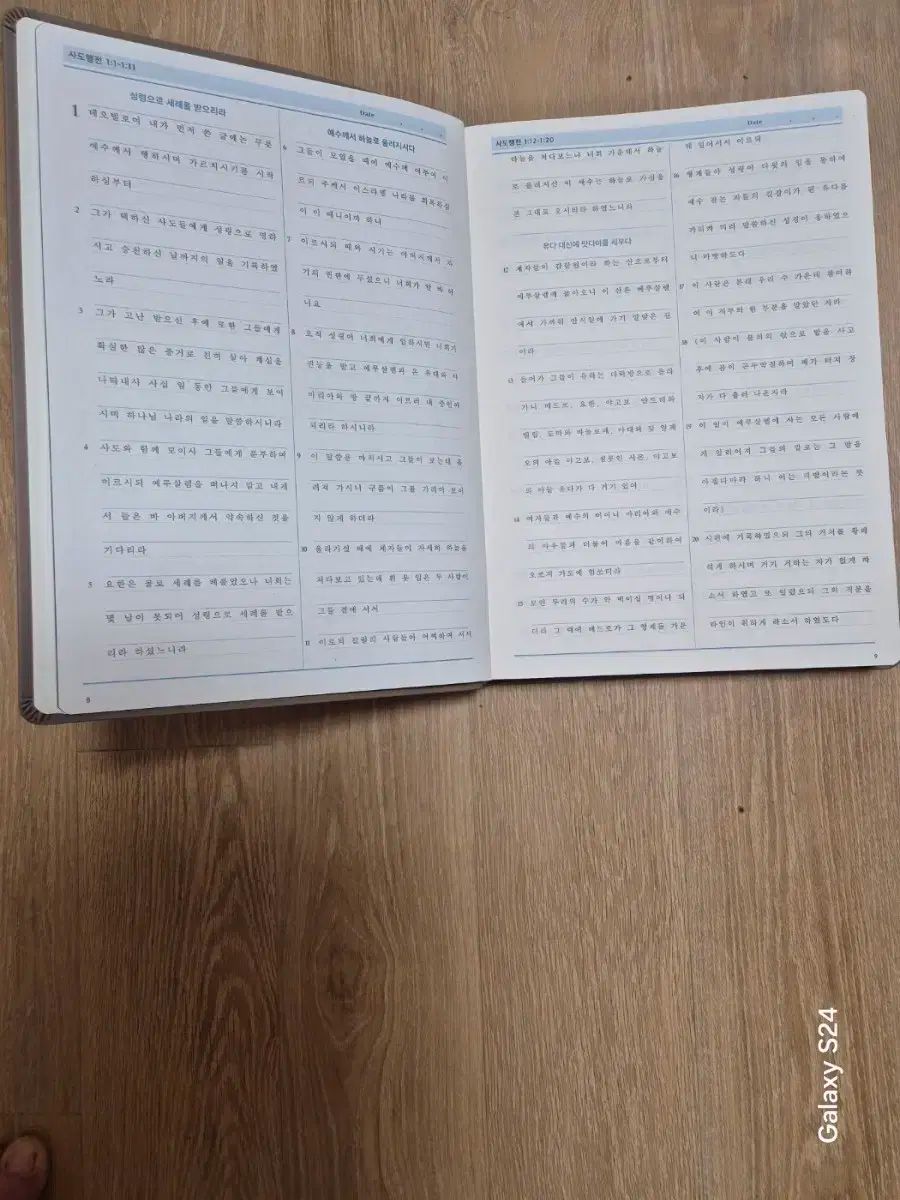 사도행전 1:1-1:11
Date
성령으로 세례를 받으리라
1 데오빌로여 내가 먼저 쓴 글에는 무릇
예수께서 행하시며 가르치시기를 시작
하심부터
2 그가 택하신 사도들에게 성령으로 명하
시고 승천하신 날까지의 일을 기록하였
노라
3 그가 고난 받으신 후에 또한 그들에게
확실한 많은 증거로 친히 살아 계심을
나타내사 사십 일 동안 그들에게 보이
시며 하나님 나라의 일을 말씀하시니라
4 사도와 함께 모이사 그들에게 분부하여
이르시되 예루살렘을 떠나지 말고 내게
서 들은 바 아버지께서 약속하신 것을
기다리라
5 요한은 물로 세례를 베풀었으나 너희는
몇 날이 못되어 성령으로 세례를 받으
리라 하셨느니라
예수께서 하늘로 올려지시다
6 그들이 모였을 때에 예수께 여쭈어 이
르되 주께서 이스라엘 나라를 회복하심
이 이 때니이까 하니
7 이르시되 때와 시기는 아버지께서 자
기의 권한에 두셨으니 너희가 알 바 아
니요
8 오직 성령이 너희에게 임하시면 너희가
권능을 받고 예루살렘과 온 유대와 사
마리아와 땅 끝까지 이르러 내 증인이
되리라 하시니라
9 이 말씀을 마치시고 그들이 보는데 올
려져 가시니 구름이 그를 가리어 보이
지 않게 하더라
10 올라가실 때에 제자들이 자세히 하늘을
쳐다보고 있는데 흰 옷 입은 두 사람이
그들 곁에 서서
11 이르되 갈릴리 사람들아 어찌하여 서서
8
사도행전 1:12-1:20
Date
하늘을 쳐다보느냐 너희 가운데서 하늘
로 올려지신 이 예수는 하늘로 가심을
본 그대로 오시리라 하였느니라
유다 대신에 맛디아를 세우다
12 제자들이 감람원이라 하는 산으로부터
예루살렘에 돌아오니 이 산은 예루살렘
에서 가까워 안식일에 가기 알맞은 길
이라
13 들어가 그들이 유하는 다락방으로 올라
가니 베드로, 요한, 야고보, 안드레와
빌립, 도마와 바돌로매, 마태와 및 알패
오의 아들 야고보, 셀롯인 시몬, 야고보
의 아들 유다가 다 거기 있어
14 여자들과 예수의 어머니 마리아와 예수
의 아우들과 더불어 마음을 같이하여
오로지 기도에 힘쓰더라
15 모인 무리의 수가 약 백이십 명이나 되
더라 그 때에 베드로가 그 형제들 가운
데 일어서서 이르되
16 형제들아 성령이 다윗의 입을 통하여
예수 잡는 자들의 길잡이가 된 유다를
가리켜 미리 말씀하신 성경이 응하였으
니 마땅하도다
17 이 사람은 본래 우리 수 가운데 참여하
여 이 직무의 한 부분을 맡았던 자라
18 (이 사람이 불의의 삯으로 밭을 사고
후에 몸이 곤두박질하여 배가 터져 창
자가 다 흘러 나온지라
19 이 일이 예루살렘에 사는 모든 사람에
게 알리어져 그들의 말로는 그 밭을
아겔다마라 하니 이는 피밭이라는 뜻
이라)
20 시편에 기록하였으되 그의 거처를 황폐
하게 하시며 거기 거하는 자가 없게 하
소서 하였고 또 일렀으되 그의 직분을
타인이 취하게 하소서 하였도다
9
Galaxy S24